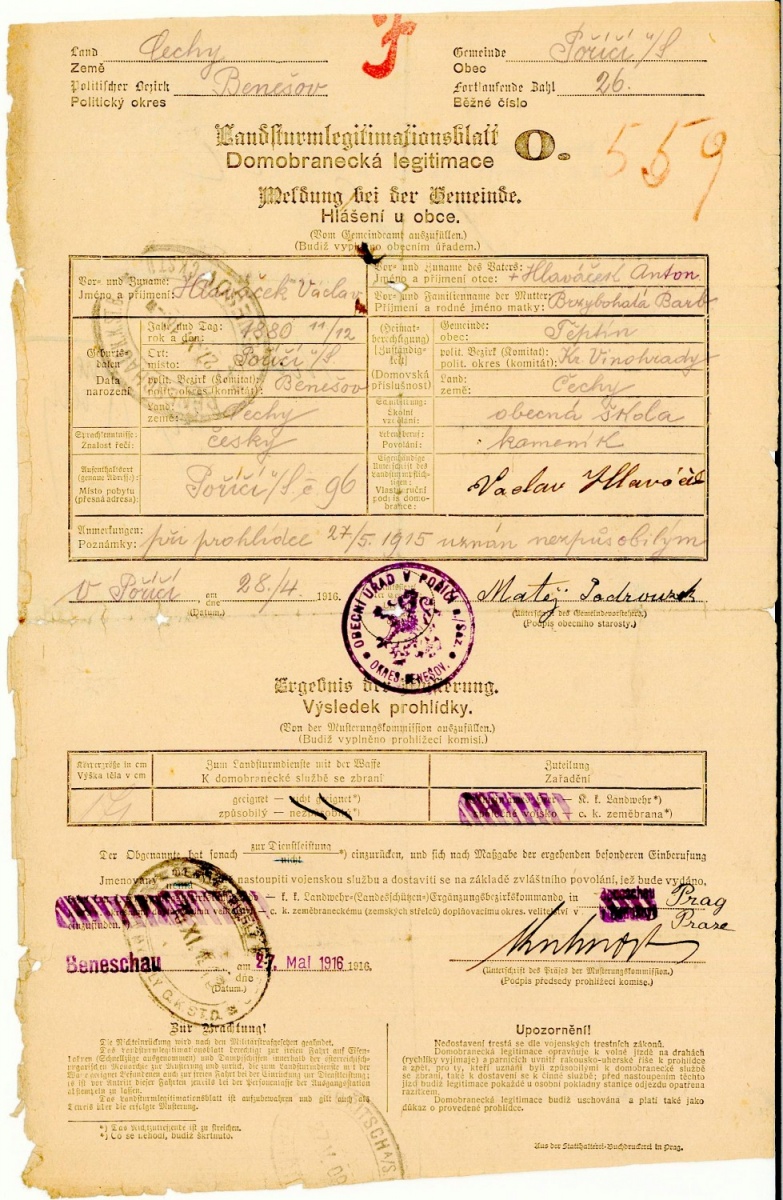 Land Čechy
Země
Gemeinde Poříčí n/S
Obec
Politischer Bezirk Benešov
Politický okres
Fortlaufende Zahl 26.
Běžné číslo
Landsturmlegitimationsblatt
Domobranecká legitimace
O.
559
Meldung bei der Gemeinde.
Hlášení u obce.
(Vom Gemeindeamt auszufüllen.)
(Budiž vyplněno obecním úřadem.)
Vor- und Zuname:
Jméno a příjmení: Hlaváček Václav
Vor- und Zuname des Vaters:
Jméno a příjmení otce: + Hlaváček Anton
Vor- und Familienname der Mutter:
Příjmení a rodné jméno matky: Barb
Geburts-
daten
Data
narození
Jahr und Tag:
rok a den: 1880 11/12
Ort:
místo: Poříčí n/S
polit. Bezirk (Komitat):
polit. okres (komitát): Benešov
Land:
země: Čechy
(Heimat-
berechtigung)
[Zuständig-
keit]
(Domovská
příslušnost)
Gemeinde:
obec: Těptín
polit. Bezirk (Komitat):
polit. okres (komitát): Kr. Vinohrady
Land:
země: Čechy
Sprachkenntnisse:
Znalost řečí: česky
Schulbildung:
Školní
vzdělání: obecná škola
Lebensberuf:
Povolání: kameník
Aufenthaltsort
(genaue Adresse):
Místo pobytu
(přesná adresa): Poříčí n/S č 96
Eigenhändige
Unterschrift des
Landsturmpflich-
tigen:
Vlastnoruční
podpis domo-
brance: Vaclav Hlaváček
Anmerkungen:
Poznámky: při prohlídce 27/5. 1915 uznán nezpůsobilým
V Poříčí am
dne 28./4. 1916.
(Datum.)
OBECNÍ ÚŘAD V POŘÍČÍ n./Sáz.
OKRES BENEŠOV.
Matěj
(Unterschrift des Gemeindevorstehers.)
(Podpis obecního starosty.)
Ergebnis der Musterung.
Výsledek prohlídky.
(Von der Musterungskommission auszufüllen.)
(Budiž vyplněno prohlížecí komisí.)
Körpergröße in cm
Výška těla v cm
Zum Landsturmdienste mit der Waffe
K domobranecké službě se zbraní
Zuteilung
Zařadění
geeignet — nicht geeignet*)
způsobilý — nezpůsobilý*)
K. k. Landwehr*)
společné vojsko — c. k. zeměbrana*)
Der Obgenannte hat sonach zur Dienstleistung
nicht *) einzurücken, und sich nach Maßgabe der ergehenden besonderen Einberufung
Jmenovaný nastoupiti vojenskou službu a dostaviti se na základě zvláštního povolání, jež bude vydáno,
— k. k. Landwehr-(Landesschützen-)Ergänzungsbezirkskommando in Prag
— c. k. zeměbraneckému (zemských střelců) doplňovacímu okres. velitelství v Praze
einzufinden.
Beneschau am
dne 27. Mai 1916 1916.
(Datum.)
(Unterschrift des Präses der Musterungskommission.)
(Podpis předsedy prohlížecí komise.)
Zur Beachtung!
Die Nichteinrückung wird nach den Militärstrafgesetzen geahndet.
Das Landsturmlegitimationsblatt berechtigt zur freien Fahrt auf Eisen-
bahnen (Schnellzüge ausgenommen) und Dampfschiffen innerhalb der österreichisch-
ungarischen Monarchie zur Musterung und zurück, die zum Landsturmdienste mit der
Waffe geeignet Befundenen auch zur freien Fahrt bei der Einrückung zur Dienstleistung;
es ist vor Antritt dieser Fahrten jeweils bei der Personenkasse der Ausgangsstation
abstempeln zu lassen.
Das Landsturmlegitimationsblatt ist aufzubewahren und gilt auch als
Beweis über die erfolgte Musterung.
*) Das Nichtzutreffende ist zu streichen.
*) Co se nehodí, budiž škrtnuto.
Upozornění!
Nedostavení trestá se dle vojenských trestních zákonů.
Domobranecká legitimace opravňuje k volné jízdě na drahách
(rychlíky vyjímaje) a parnících uvnitř rakousko-uherské říše k prohlídce
a zpět, pro ty, kteří uznáni byli způsobilými k domobranecké službě
se zbraní, také k dostavení se k činné službě; před nastoupením těchto
jízd budiž legitimace pokaždé u osobní pokladny stanice odjezdu opatřena
razítkem.
Domobranecká legitimace budiž uschována a platí také jako
důkaz o provedené prohlídce.
Aus der Statthalterei-Buchdruckerei in Prag.